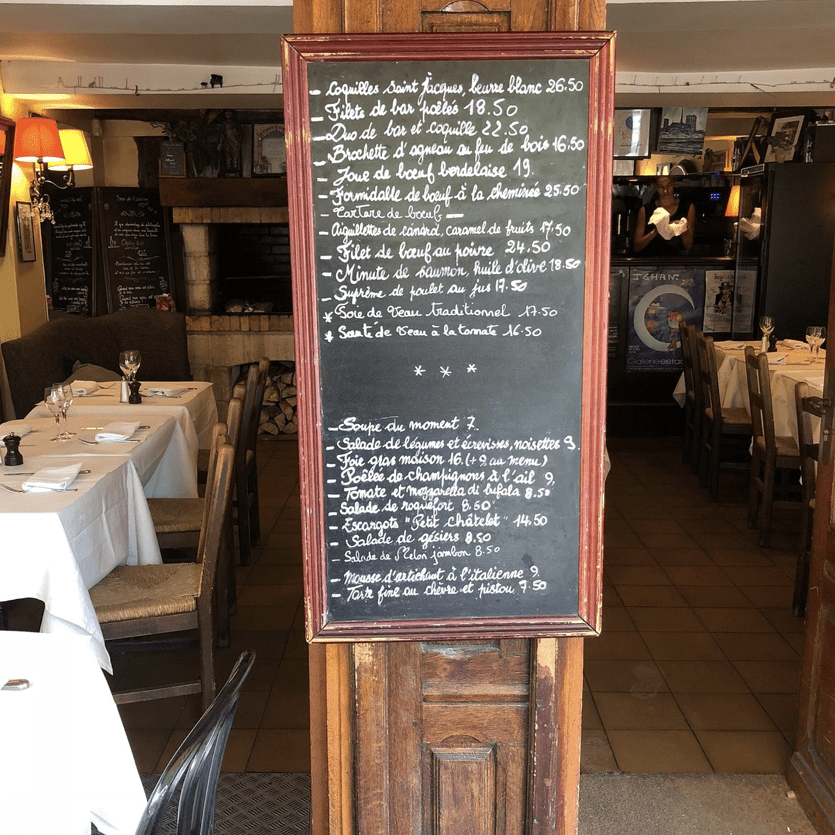 - Coquilles Saint Jacques, beurre blanc 26.50
- Filets de bar poêlés 18.50
- Duo de bar et coquille 22.50
- Brochette d'agneau au feu de bois 16.50
- Joue de bœuf bordelaise 19.
- Formidable de bœuf à la cheminée 25.50
- Tartare de bœuf —
- Aiguillettes de canard, caramel de fruits 17.50
- Filet de bœuf au poivre 24.50
- Minute de saumon, huile d'olive 18.50
- Suprême de poulet au jus 17.50
* Foie de Veau traditionnel 17.50
* Sauté de veau à la tomate 16.50
* * *
- Soupe du moment 7.
- Salade de légumes et écrevisses, noisettes 9.
- Foie gras maison 16. (+9 au menu)
- Poêlée de champignons à l'ail 9.
- Tomate et mozzarella di bufala 8.50
- Salade de roquefort 8.50
- Escargots "Petit Châtelet" 14.50
- Salade de gésiers 8.50
- Salade de melon jambon 8.50
- Mousse d'artichaut à l'italienne 9.
- Tarte fine au chèvre et pistou 7.50